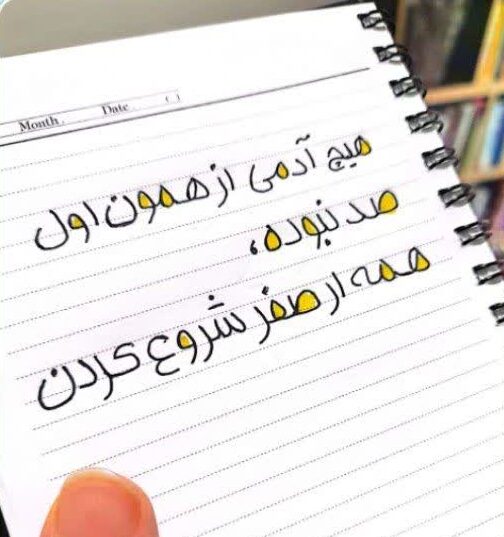 Month. Date ( )
هیچ آدمی از همون اول
صد نبوده،
همه از صفر شروع کردن